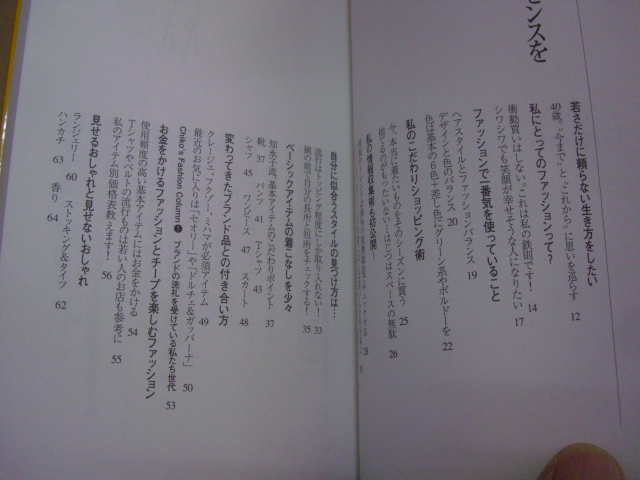 センスを
若さだけに頼らない生き方をしたい
40歳。“今まで”と“これから”に思いを巡らす 12
私にとってのファッションって?
衝動買いはしない。これは私の鉄則です! 14
シワシワでも笑顔が幸せそうな人になりたい 17
ファッションで一番気を使っていること
ヘアスタイルとファッションバランス 19
デザインと色のバランス 20
色は基本の6色+差し色にグリーン系やボルドーを 22
私のこだわりショッピング術
今、本当に着たいものをそのシーズンに買う 25
捨てるのがもったいない…はじつはスペースの無駄 26
私の情報収集術も初公開!
28
自分に似合うスタイルの見つけ方は…
流行はトッピング程度にしか取り入れない! 33
鏡の前で自分の長所と短所をチェックする! 35
ベーシックアイテムの着こなしを少々
知永子流、基本アイテムのこだわりポイント 37
靴 37 パンツ 41 Tシャツ 43
シャツ 45 ワンピース 47 スカート 48
変わってきたブランド品との付き合い方
クレージュ、フクゾー、ミハマが必須アイテム 49
最近のお気に入りは「セオリー」や「ドルチェ&ガッバーナ」 50
Chiko's Fashion Column 1 ブランドの洗礼を受けている私たち世代 53
お金をかけるファッションとチープを楽しむファッション
使用頻度の高い基本アイテムにはお金をかける 54
Tシャツやベルトの流行ものは若い人のお店も参考に 55
私のアイテム別価格表教えます! 56
見せるおしゃれと見せないおしゃれ
ランジェリー 60 ストッキング&タイツ 62
ハンカチ 63 香り 64